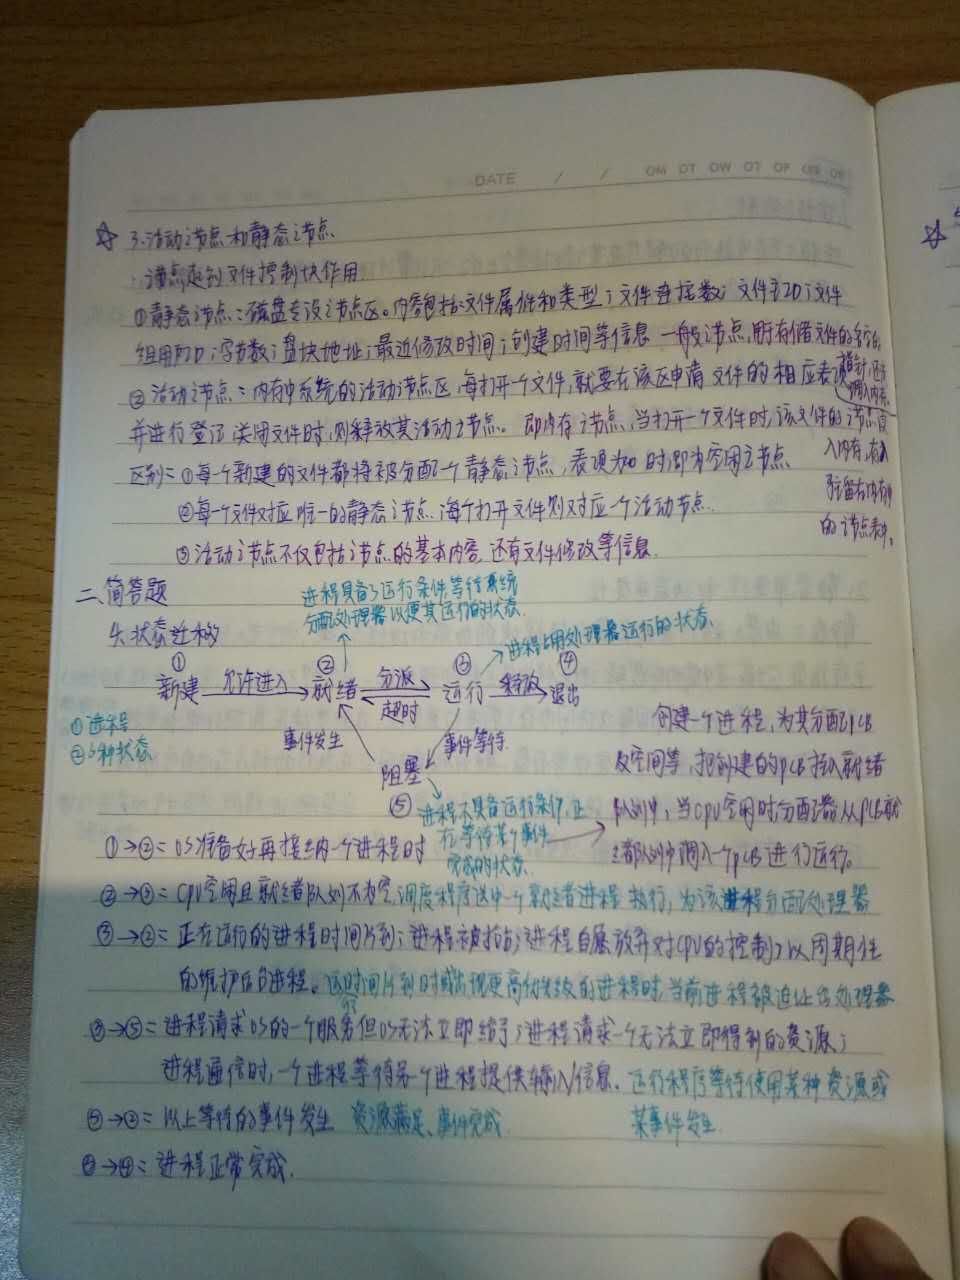 DATE / /
3.活动i节点和静态i节点
i节点起到文件控制块作用
①静态i节点:磁盘专设i节点区。内容包括:文件属性和类型;文件连接数;文件主ID;文件
组用户ID;字节数;盘块地址;最近修改时间;创建时间等信息 一般i节点,用于存储文件的
②活动i节点:内存中系统的活动i节点区,每打开一个文件,就要在该区申请文件的相应表项
指针,还
调入内存
并进行登记 关闭文件时,则释放其活动i节点。即内存i节点,当打开一个文件时,该文件的i节点
入内存,存入
区别:①每个新建的文件都将被分配一个静态i节点,表项为0时即为空闲i节点
驻留在内存
②每个文件对应唯一的静态i节点,每个打开文件则对应一个活动i节点.
的i节点表中。
③活动i节点不仅包括i节点的基本内容,还有文件修改等信息.
二、简答题
进程具备了运行条件等待系统
分配处理器以便其运行的状态.
4.状态迁移
进程占用处理器运行的状态.
① ② ③ ④
新建 允许进入 就绪 分派 运行 释放 退出
超时
①进程
②5种状态
事件发生 事件等待
阻塞
⑤
创建一个进程,为其分配PCB
及空间等,把创建的PCB插入就绪
队列中,当CPU空闲时分配器从PCB就
绪队列中调入一个PCB进行运行。
进程不具备运行条件,正
在等待某个事件
完成的状态.
①→②:OS准备好再接纳一个进程时
②→③:CPU空闲且就绪队列不为空,调度程序选中一个就绪进程执行,为该进程分配处理器
③→②:正在运行的进程时间片到;进程被抢占;进程自愿放弃对CPU的控制,以周期性
的维护后台进程。运行时间片到时或出现更高优先级的进程时,当前进程被迫让出处理器
③→⑤:进程请求OS的一个服务但OS无法立即给予;进程请求一个无法立即得到的资源;
进程通信时,一个进程等待另一个进程提供输入信息.运行程序等待使用某种资源或
某事件发生.
⑤→②:以上等待的事件发生 资源满足、事件完成.
③→④:进程正常完成.